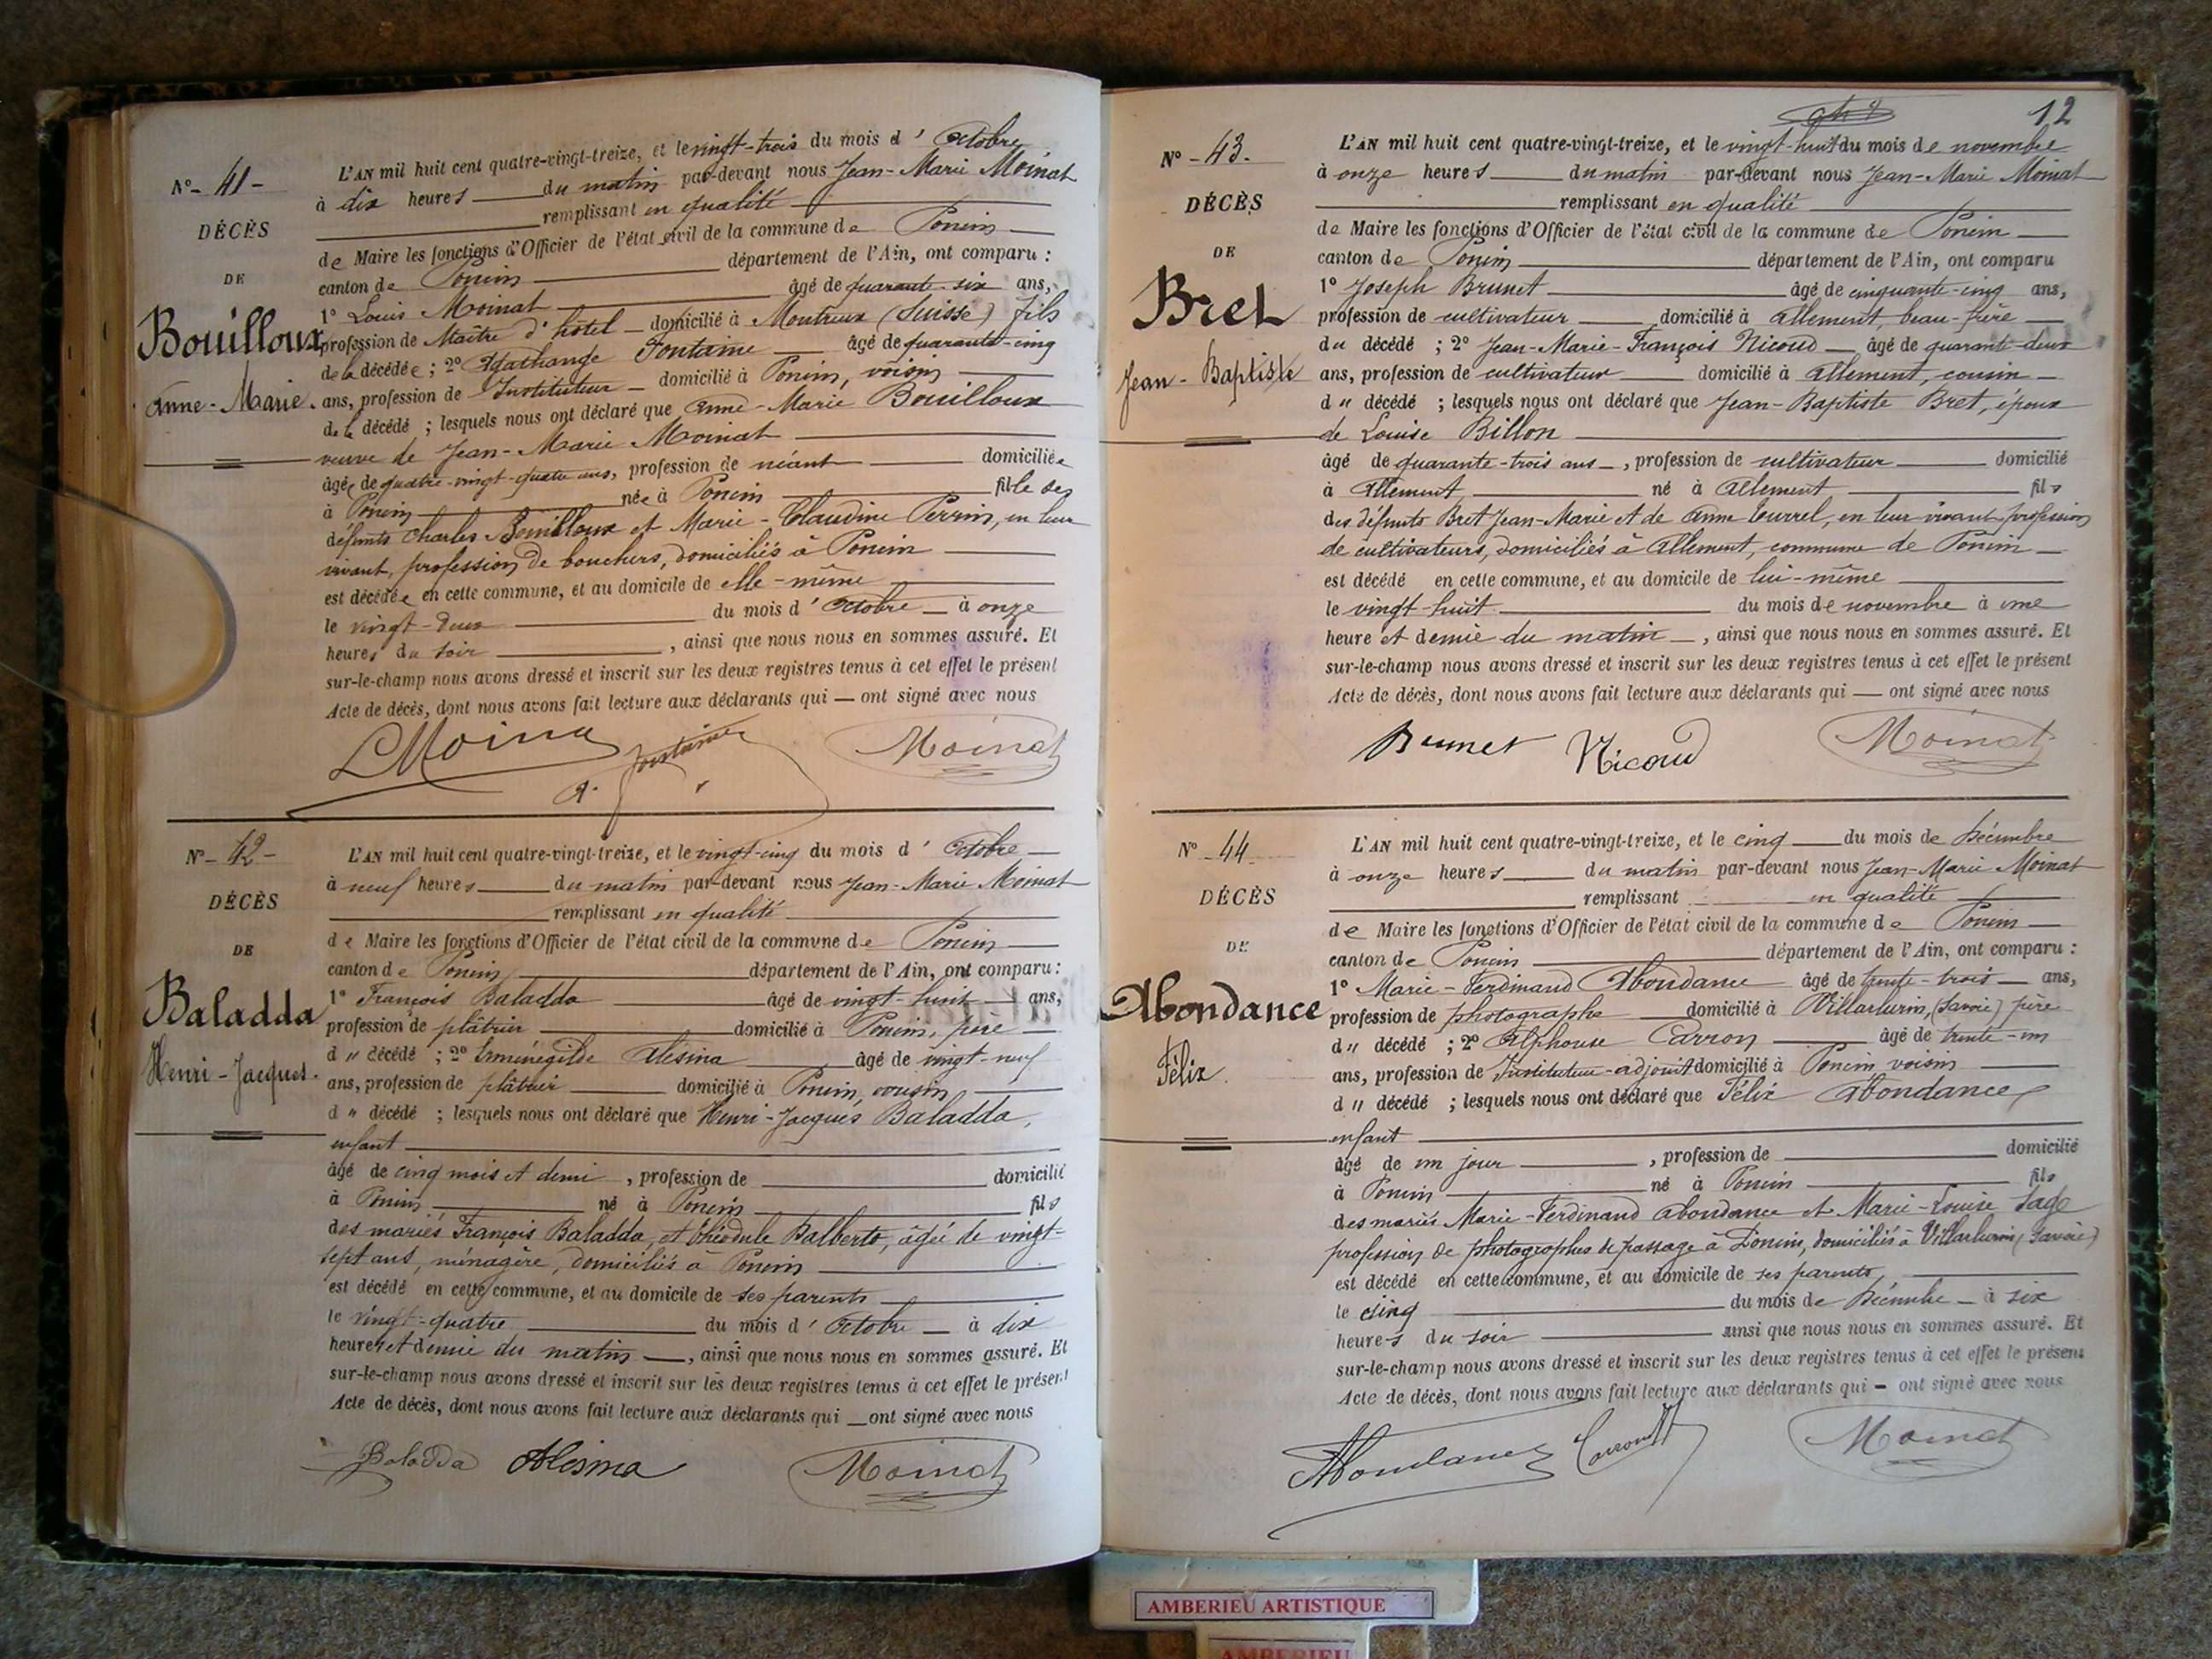 N° - 41 -
DÉCÈS
DE
Bouilloux
Anne-Marie.
L'AN mil huit cent quatre-vingt-treize, et le vingt-trois du mois d' Octobre
à dix heures du matin par-devant nous Jean-Marie Moinat
remplissant en qualité
de Maire les fonctions d'Officier de l'état civil de la commune de Poncin
canton de Poncin département de l'Ain, ont comparu :
1° Louis Moinat âgé de quarante-six ans,
profession de Maître d'hôtel domicilié à Montreux (Suisse) fils
de la décédée ; 2° Agathange Fontaine âgé de quarante-cinq
ans, profession de Instituteur domicilié à Poncin, voisin
de la décédé ; lesquels nous ont déclaré que Anne-Marie Bouilloux
veuve de Jean-Marie Moinat
âgée de quatre-vingt-quatre ans, profession de néant domiciliée
à Poncin née à Poncin fille des
défunts Charles Bouilloux et Marie-Claudine Perrin, en leur
vivant, profession de bouchers, domiciliés à Poncin
est décédée en cette commune, et au domicile de elle-même
le vingt-deux du mois d' Octobre à onze
heures du soir , ainsi que nous nous en sommes assuré. Et
sur-le-champ nous avons dressé et inscrit sur les deux registres tenus à cet effet le présent
Acte de décès, dont nous avons fait lecture aux déclarants qui — ont signé avec nous
LMoina A. Fontaine Moinat
N° - 42 -
DÉCÈS
DE
Baladda
Henri-Jacques.
L'AN mil huit cent quatre-vingt-treize, et le vingt-cinq du mois d' Octobre
à neuf heures du matin par-devant nous Jean-Marie Moinat
remplissant en qualité
de Maire les fonctions d'Officier de l'état civil de la commune de Poncin
canton de Poncin département de l'Ain, ont comparu :
1° François Baladda âgé de vingt-huit ans,
profession de plâtrier domicilié à Poncin, père
d " décédé ; 2° Erménégilde Alésina âgé de vingt-neuf
ans, profession de plâtrier domicilié à Poncin, cousin
d " décédé ; lesquels nous ont déclaré que Henri-Jacques Baladda,
enfant
âgé de cinq mois et demi , profession de domicilié
à Poncin né à Poncin fils
des mariés François Baladda, et Théodule Balberto, âgée de vingt-
sept ans, ménagère, domiciliés à Poncin
est décédé en cette commune, et au domicile de ses parents
le vingt-quatre du mois d' Octobre à dix
heures et demie du matin , ainsi que nous nous en sommes assuré. Et
sur-le-champ nous avons dressé et inscrit sur les deux registres tenus à cet effet le présent
Acte de décès, dont nous avons fait lecture aux déclarants qui — ont signé avec nous
Baladda Alesina Moinat
12
N° - 43 -
DÉCÈS
DE
Bret
Jean-Baptiste
L'AN mil huit cent quatre-vingt-treize, et le vingt-huit du mois de novembre
à onze heures du matin par-devant nous Jean-Marie Moinat
remplissant en qualité
de Maire les fonctions d'Officier de l'état civil de la commune de Poncin
canton de Poncin département de l'Ain, ont comparu
1° Joseph Brunet âgé de cinquante-cinq ans,
profession de cultivateur domicilié à Allement, beau-frère
du décédé ; 2° Jean-Marie-François Nicoud âgé de quarante-deux
ans, profession de cultivateur domicilié à Allement, cousin
d " décédé ; lesquels nous ont déclaré que Jean-Baptiste Bret, époux
de Louise Billon
âgé de quarante-trois ans , profession de cultivateur domicilié
à Allement né à Allement fils
des défunts Bret Jean-Marie et de Anne , en leur vivant profession
de cultivateurs, domiciliés à Allement, commune de Poncin
est décédé en cette commune, et au domicile de lui-même
le vingt-huit du mois de novembre à une
heure et demie du matin , ainsi que nous nous en sommes assuré. Et
sur-le-champ nous avons dressé et inscrit sur les deux registres tenus à cet effet le présent
Acte de décès, dont nous avons fait lecture aux déclarants qui — ont signé avec nous
Brunet Nicoud Moinat
N° - 44
DÉCÈS
DE
Abondance
Félix.
L'AN mil huit cent quatre-vingt-treize, et le cinq du mois de Décembre
à onze heures du matin par-devant nous Jean-Marie Moinat
remplissant en qualité
de Maire les fonctions d'Officier de l'état civil de la commune de Poncin
canton de Poncin département de l'Ain, ont comparu :
1° Marie-Ferdinand Abondance âgé de trente-trois ans,
profession de photographe domicilié à Villarlurin, (Savoie) père
d " décédé ; 2° Alphonse Carron âgé de trente-un
ans, profession de Instituteur-adjoint domicilié à Poncin, voisin
d " décédé ; lesquels nous ont déclaré que Félix Abondance
enfant
âgé de un jour , profession de domicilié
à Poncin né à Poncin fils
des mariés Marie-Ferdinand Abondance et Marie-Louise Sage
profession de photographes de passage à Poncin, domiciliés à Villarlurin (Savoie)
est décédé en cette commune, et au domicile de ses parents,
le cinq du mois de Décembre à six
heures du soir ainsi que nous nous en sommes assuré. Et
sur-le-champ nous avons dressé et inscrit sur les deux registres tenus à cet effet le présent
Acte de décès, dont nous avons fait lecture aux déclarants qui — ont signé avec nous
Abondance Moinat
AMBERIEU ARTISTIQUE
AMBERIEU